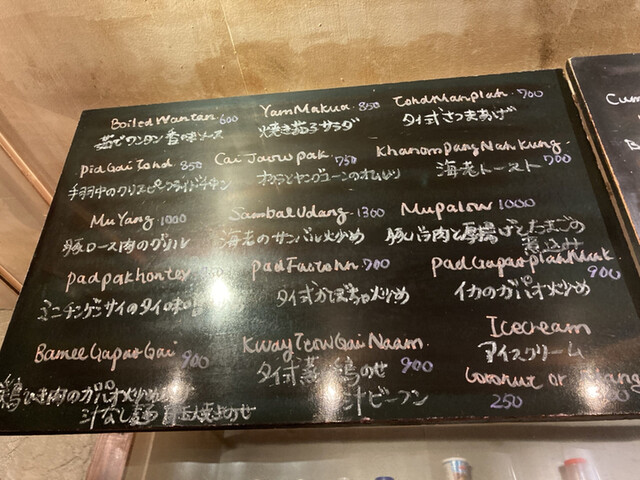 Boiled Wantan 600
茹でワンタン 香味ソース
YamMakua 850
焼き茄子サラダ
TondManplah 700
タイ式さつまあげ
PidGaiTond 850
手羽中のクリスピーフライドチキン
Cai Jaow pak 750
オクラとヤングコーンのオムレツ
Khanom pang Nah Kung
海老トースト 700
Mu Yang 1000
豚ロース肉のグリル
Sambal Udang 1300
海老のサンバル炒め
Mupalow 1000
豚バラ肉と厚揚げとたまごの
煮込み
padpakhontey
ミニチンゲンサイのタイ味噌
PadFactohn 700
タイ式かぼちゃ炒め
Pad Gapao planMuk
900
イカのガパオ炒め
BameeGapaoGai 900
鶏ひき肉のガパオ炒め
汁なし麺
KwayTeowGai Naam
タイ式蒸し鶏のせ 900
汁ビーフン
Icecream
アイスクリーム
Coconut or
250
Cum